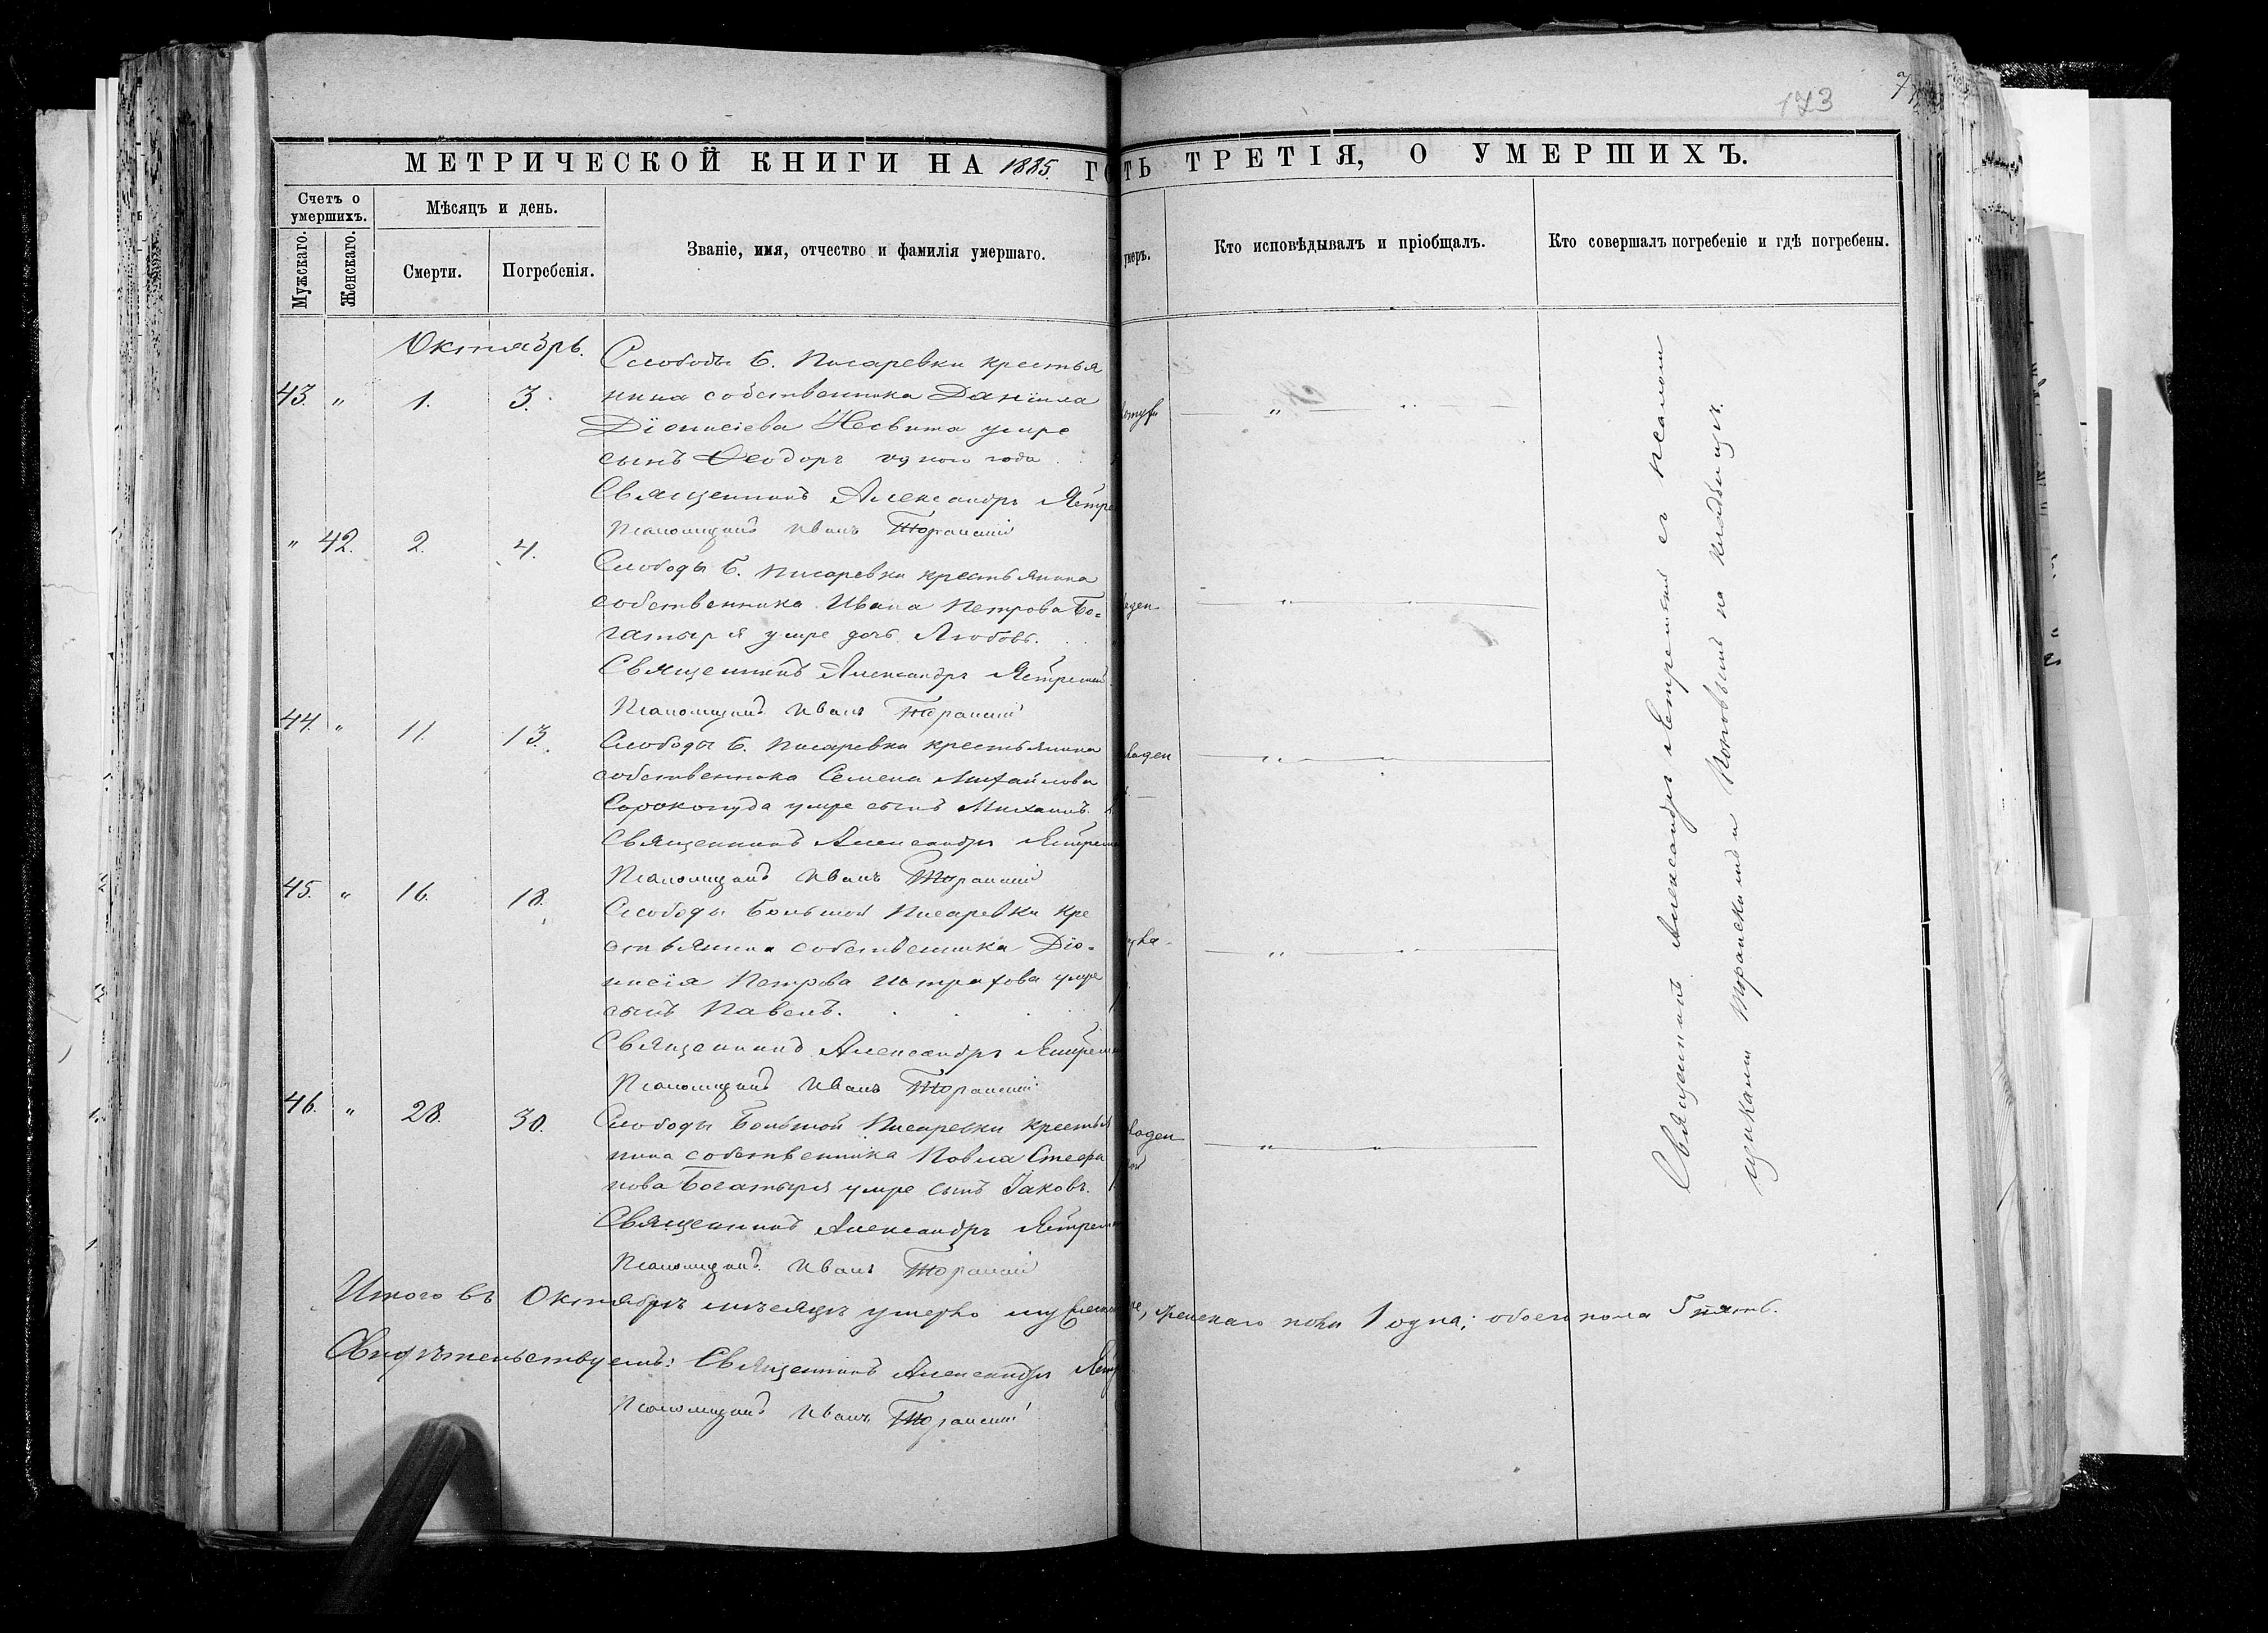 173
МЕТРИЧЕСКОЙ КНИГИ НА 1885. ГО
ТЬ ТРЕТІЯ, О УМЕРШИХЪ.
Счетъ о умершихъ.
Мужскаго.
Женскаго.
Мѣсяцъ и день.
Смерти.
Погребенія.
Званіе, имя, отчество и фамилія умершаго.
умеръ.
Кто исповѣдывалъ и пріобщалъ.
Кто совершалъ погребеніе и гдѣ погребены.
Октябрь.
43. " 1. 3.
Слободы Б. Писаревки крестья
нина собственника Даніила
Діонисіева Несвита умре
сынъ Ѳеодоръ одного года
Священникъ Александръ Ястре
Псаломщикъ Иванъ Торанскій
" 42. 2. 4.
Слободы Б. Писаревки крестьянина
собственника Ивана Петрова Бо=
гатыря умре дочь Любовь.
Священникъ Александръ Ястремскій
Псаломщикъ Иванъ Торанскій
44. " 11. 13.
Слободы Б. Писаревки крестьянина
собственника Семена Михайлова
Сорокопуда умре сынъ Михаилъ.
Священникъ Александръ Ястремс
Псаломщикъ Иванъ Торанскій
45. " 16. 18.
Слободы Большой Писаревки кре
стьянина собственника Діо-
нисія Петрова умре
сынъ Павелъ.
Священникъ Александръ Ястремс
Псаломщикъ Иванъ Торанскій
46. " 28. 30.
Слободы Большой Писаревки крестья
нина собственника Павла Стефа
нова Богатыря умре сынъ Іаковъ.
Священникъ Александръ Ястремс
Псаломщикъ Иванъ Торанскій
Итого въ Октябрѣ мѣсяцѣ умерло мужеска
ре, женскаго пола 1 одна; обоего пола 5 пять.
Свидѣтельствуемъ: Священникъ Александръ Ястр
Псаломщикъ Иванъ Торанскій
Священникъ Александръ Ястремскій съ псалом
щиками Торанскимъ и на кладбищѣ.